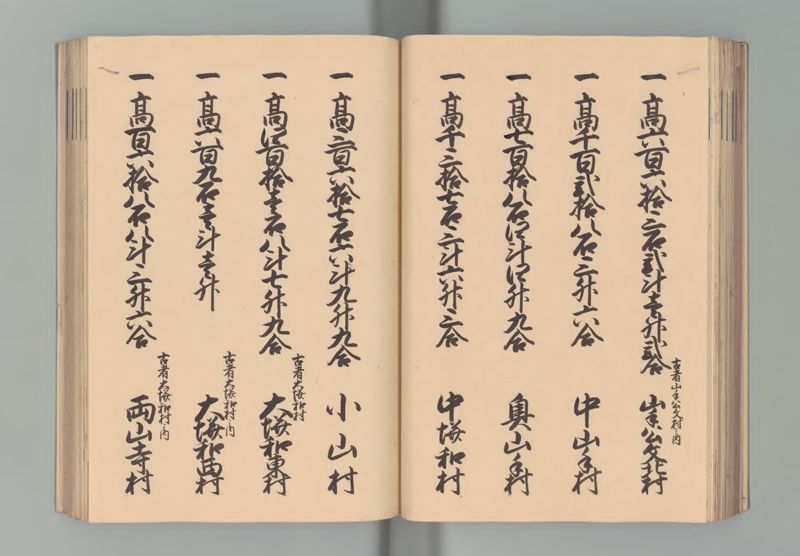 一 高六百六拾三石弐斗壱升弐合
古者山手公文村之内
山手公文北村
一 高千百弐拾八石三升六合
中山手村
一 高七百拾八石四斗四升九合
奥山手村
一 高千三拾七石三斗六升三合
中垪和村
一 高三百六拾七石六斗九升九合
小山村
一 高四百拾壱石八斗七升九合
古者大垪和村
大垪和東村
一 高六百九石壱斗壱升
古者大垪和村之内
大垪和西村
一 高百六拾八石八斗三升六合
古者大垪和村之内
両山寺村